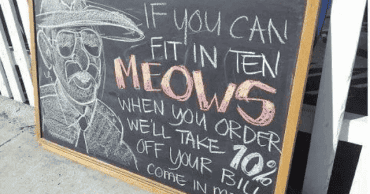 IF YOU CAN
FIT IN TEN
MEOWS
WHEN YOU ORDER
WE'LL TAKE 10%
OFF YOUR BILL
COME IN